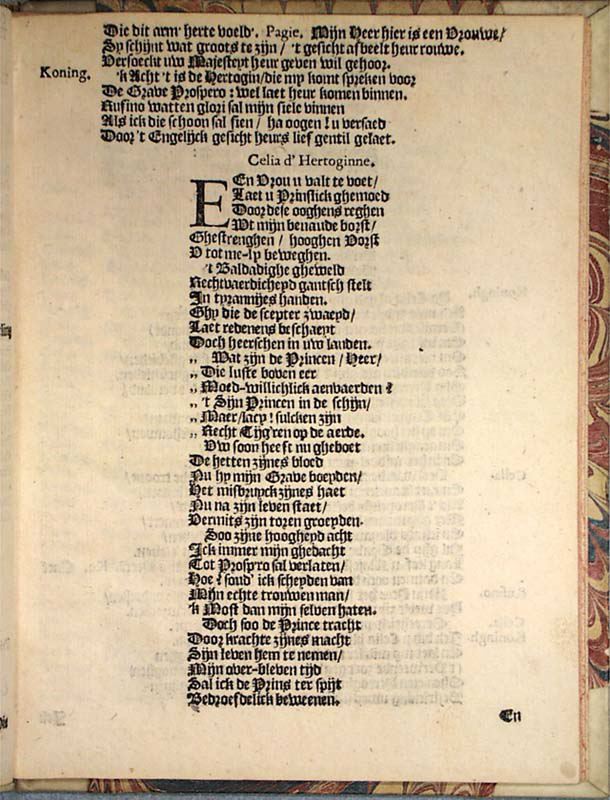 Die dit arm' herte voeld'. Pagie. Mijn Heer hier is een Vrouwe/
Sy schijnt wat groots te zijn/ 't gesicht afbeelt heur rouwe.
Versoeckt uw Majesteyt heur geven wil gehoor.
Koning. 'k Acht 't is de Hertogin/die my komt spreken voor
De Grave Prospero: wel laet heur komen binnen.
Rufino watten glori sal mijn siele vinnen
Als ick die schoon sal sien/ ha oogen! u versaed
Door 't Engelijck gesicht heurs lief gentil gelaet.
Celia d' Hertoginne.
EEn Vrou u valt te voet/
Laet u Prinslick ghemoed
Door dese ooghens reghen
Wt mijn benaude borst/
Ghestrenghen/ hooghen Vorst
V tot me-ly beweghen.
't Baldadighe gheweld
Rechtvaerdicheyd gantsch stelt
In tyrannijes handen.
Ghy die de scepter zwaeyd/
Laet redenens beschaeyt
Doch heerschen in uw landen.
„ Wat zijn de Princen/ Heer/
„ Die luste boven eer
„ Moed-willichlick aenvaerden?
„ 't Sijn Princen in de schijn/
„ Maer/lacy! sulcken zijn
„ Recht Tijg'ren op de aerde.
Vw soon heeft nu gheboet
De hetten zijnes bloed
Nu hy mijn Grave boeyden/
Het misbruyck zijnes haet
Nu na zijn leven staet/
Vermits zijn toren groeyden.
Soo zijne hoogheyd acht
Ick immer mijn ghedacht
Tot Prosp'ro sal verlaten/
Hoe? soud' ick scheyden van
Mijn echte trouwen man/
'k Most dan mijn selven haten.
Doch soo de Prince tracht
Door krachte zijnes macht
Sijn leven hem te nemen/
Mijn over-bleven tijd
Sal ick de Prins ter spijt
Bedroefdelick beweenen.
En